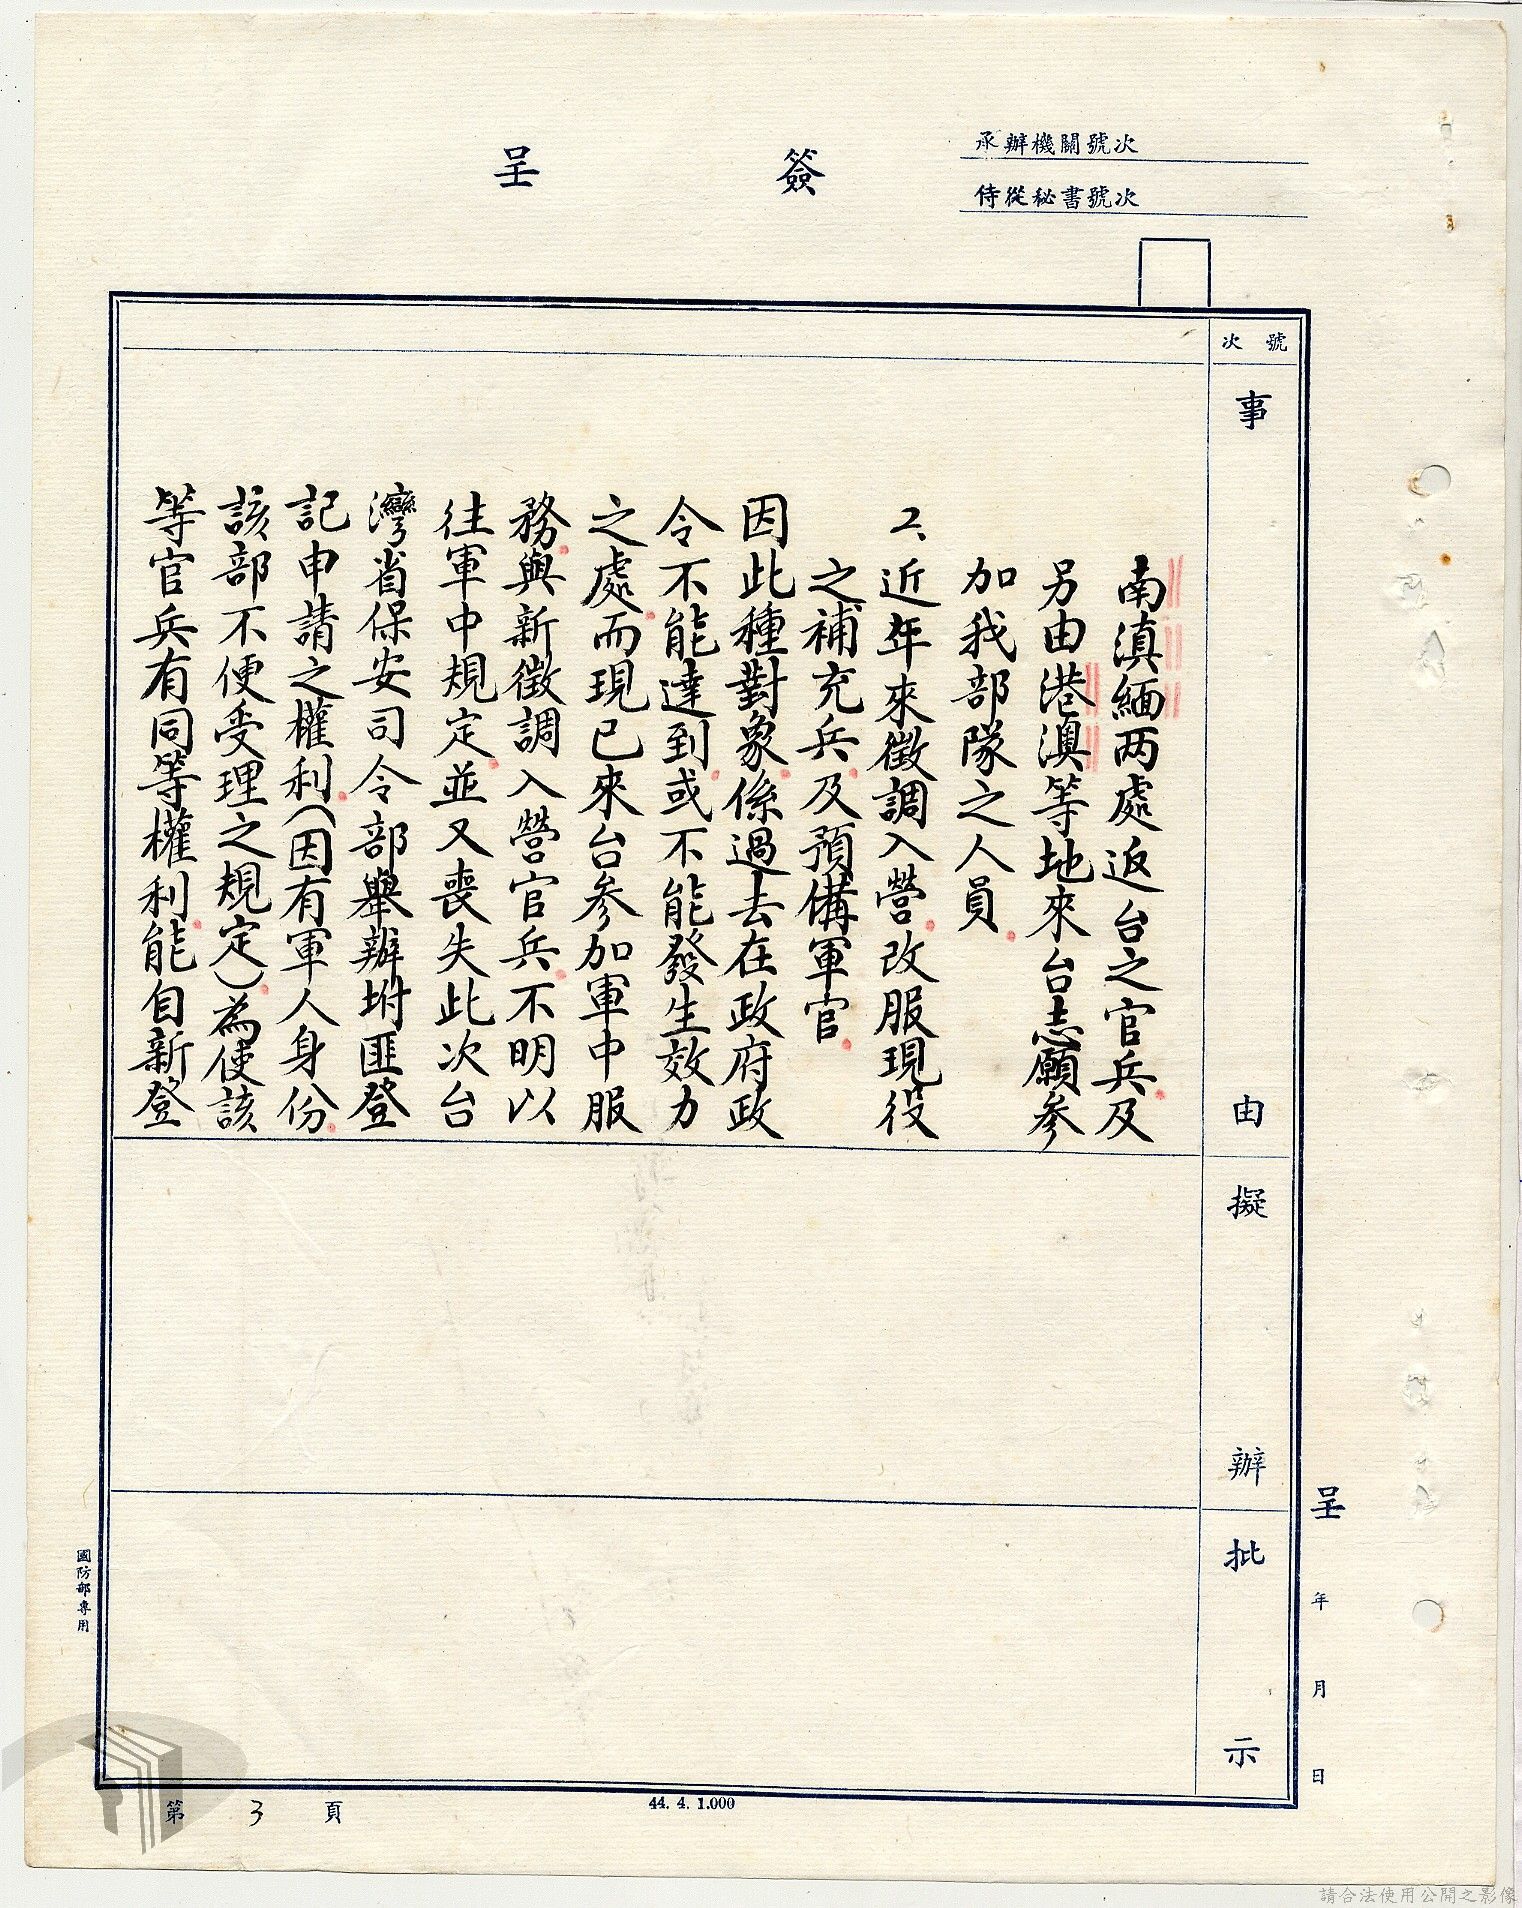 簽呈
承辦機關號次
侍從秘書號次
號次
事由
南滇緬两處返台之官兵及
另由港澳等地來台志願參
加我部隊之人員
2、近年來徵調入營改服現役
之補充兵及預備軍官
因此種對象係過去在政府政
令不能達到或不能發生效力
之處而現已來台參加軍中服
務與新徵調入營官兵不明以
往軍中規定並又喪失此次台
灣省保安司令部舉辦坿匪登
記申請之權利(因有軍人身份
該部不便受理之規定)為使該
等官兵有同等權利能自新登
擬辦
批示
呈 年 月 日
國防部專用
第 3 頁
44. 4. 1.000
請合法使用公開之影像